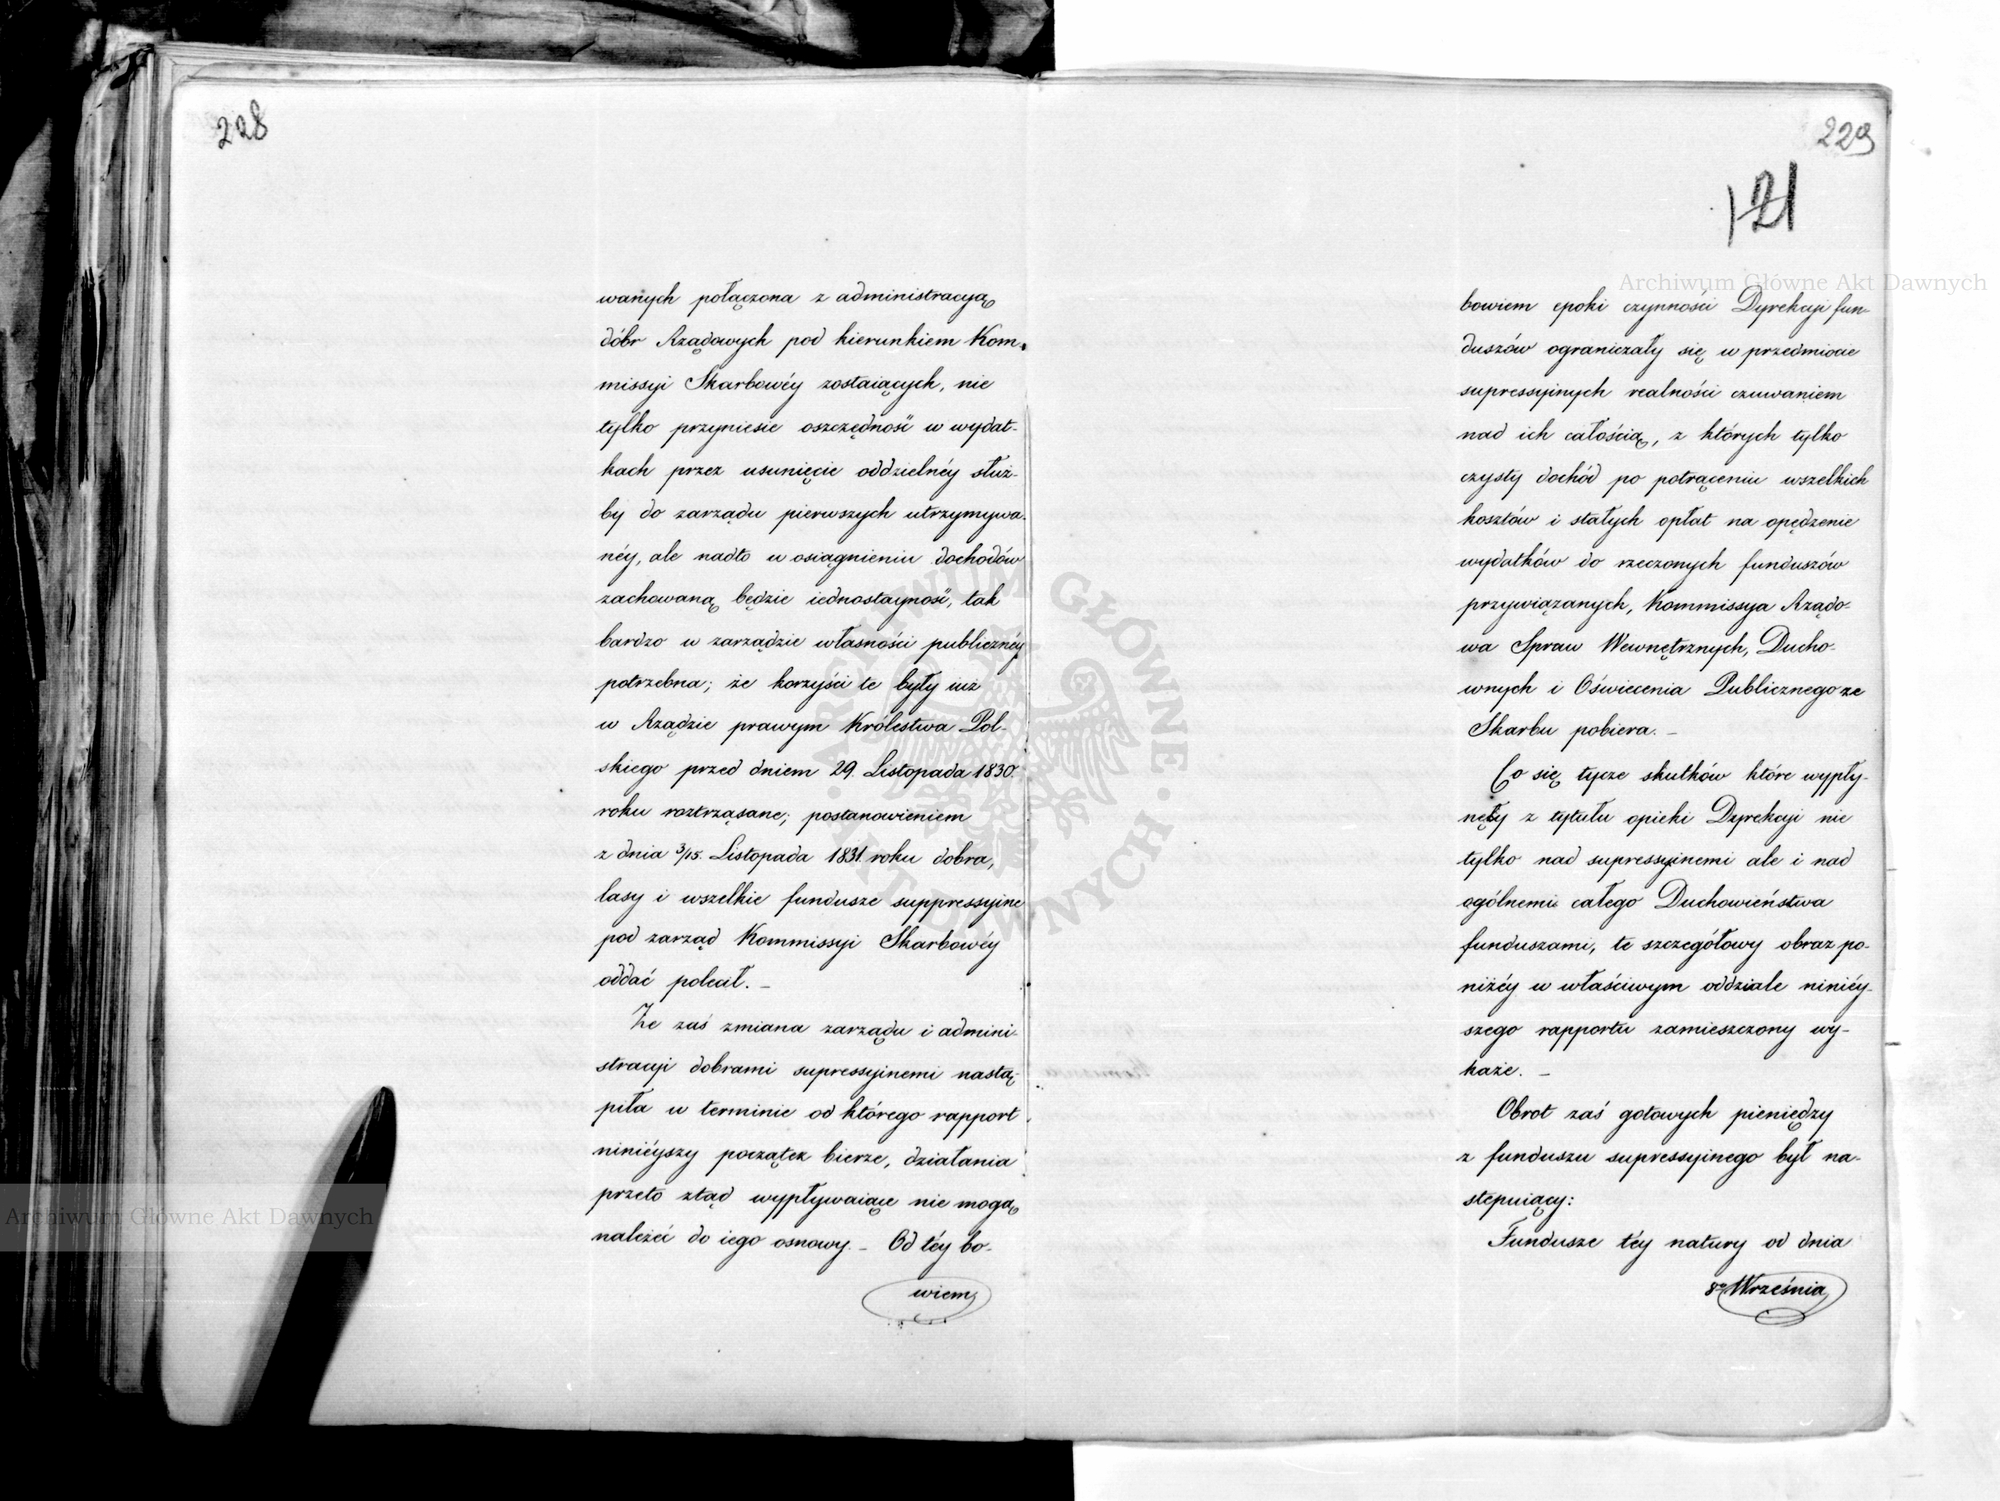 228
wanych połączona z administracyą
dóbr Rządowych pod kierunkiem Kom-
missyi Skarbowéy zostaiących, nie
tylko przyniesie oszczędność w wydat-
kach przez usunięcie oddzielnéy służ-
by do zarządu pierwszych utrzymywa-
néy, ale nadto w osiągnieniu dochodów
zachowaną będzie iednostayność, tak
bardzo w zarządzie własności publicznéy
potrzebna; że korzyści te były iuż
w Rządzie prawym Królestwa Pol-
skiego przed dniem 29. Listopada 1830.
roku roztrząsane; postanowieniem
z dnia 3/15. Listopada 1831 roku dobra,
lasy i wszelkie fundusze suppressyine
pod zarząd Kommissyi Skarbowéy
oddać polecił. –
Że zaś zmiana zarządu i admini-
stracyi dobrami supressyinemi nastą-
piła w terminie od którego rapport
ninieyszy początek bierze, działania
przeto ztąd wypływaiące nie mogą
należéć do iego osnowy. – Od téy bo-
wiem
229
121
bowiem epoki czynności Dyrekcyi fun-
duszów ograniczały się w przedmiocie
supressyinych realności czuwaniem
nad ich całością, z których tylko
czysty dochód po potrąceniu wszelkich
kosztów i stałych opłat na opędzenie
wydatków do rzeczonych funduszów
przywiązanych, Kommissya Rządo-
wa Spraw Wewnętrznych, Ducho-
wnych i Oświecenia Publicznego ze
Skarbu pobiera. –
Co się tycze skutków które wypły-
nęły z tytułu opieki Dyrekcyi nie
tylko nad supressyinemi ale i nad
ogólnemi całego Duchowieństwa
funduszami, te szczegółowy obraz po-
niżéy w właściwym oddziale niniéy-
szego rapportu zamieszczony wy-
każe. –
Obrot zaś gotowych pieniędzy
z funduszu supressyinego był na-
stepuiący:
Fundusze téy natury od dnia
8º Września
Archiwum Główne Akt Dawnych
Archiwum Główne Akt Dawnych
ARCHIWUM GŁÓWNE AKT DAWNYCH